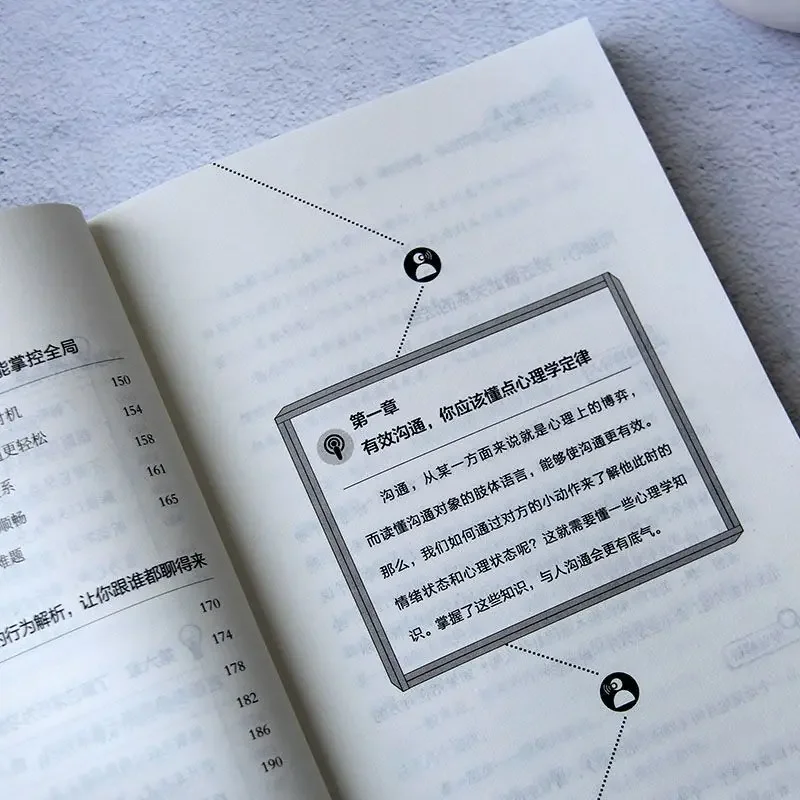 能掌控全局
150
时机 154
更轻松 158
系 161
顺畅 165
难题
的行为解析，让你跟谁都聊得来
170
174
178
182
186
190
第一章
有效沟通，你应该懂点心理学定律
沟通，从某一方面来说就是心理上的博弈，
而读懂沟通对象的肢体语言，能够使沟通更有效。
那么，我们如何通过对方的小动作来了解他此时的
情绪状态和心理状态呢？这就需要懂一些心理学知
识。掌握了这些知识，与人沟通会更有底气。